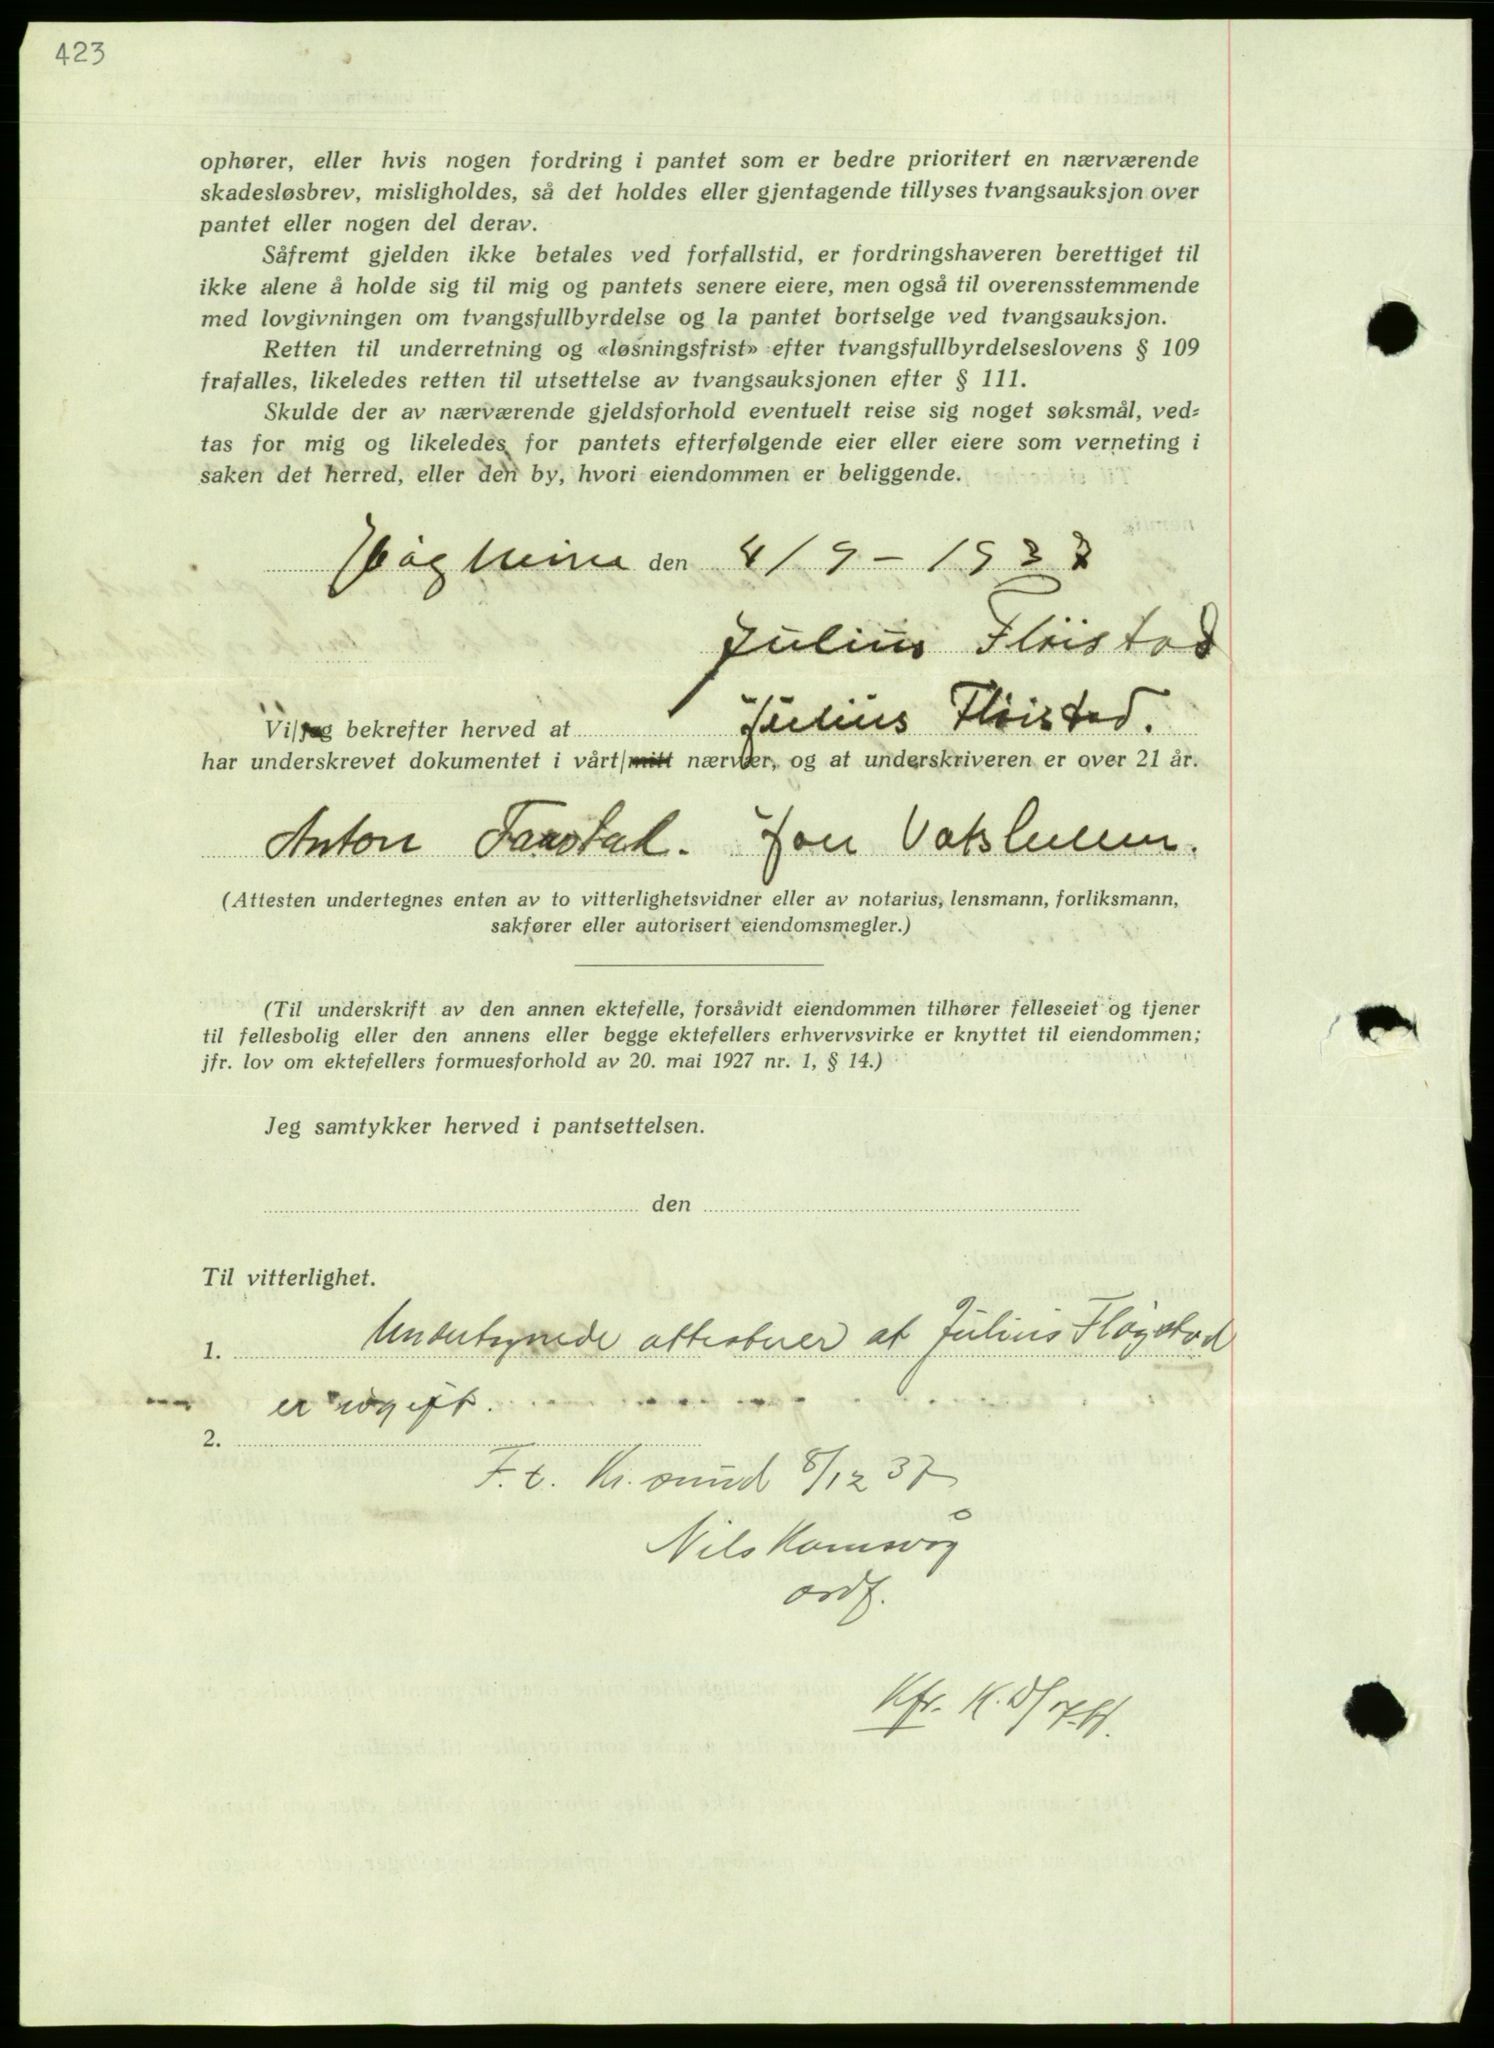 423
ophører, eller hvis nogen fordring i pantet som er bedre prioritert en nærværende
skadesløsbrev, misligholdes, så det holdes eller gjentagende tillyses tvangsauksjon over
pantet eller nogen del derav.
Såfremt gjelden ikke betales ved forfallstid, er fordringshaveren berettiget til
ikke alene å holde sig til mig og pantets senere eiere, men også til overensstemmende
med lovgivningen om tvangsfullbyrdelse og la pantet bortselge ved tvangsauksjon.
Retten til underretning og «løsningsfrist» efter tvangsfullbyrdelseslovens § 109
frafalles, likeledes retten til utsettelse av tvangsauksjonen efter § 111.
Skulde der av nærværende gjeldsforhold eventuelt reise sig noget søksmål, ved-
tas for mig og likeledes for pantets efterfølgende eier eller eiere som verneting i
saken det herred, eller den by, hvori eiendommen er beliggende.
den 4/9 - 1937
Julius Fløistad
Vi/jeg bekrefter herved at Julius Fløistad.
har underskrevet dokumentet i vårt/mitt nærvær, og at underskriveren er over 21 år.
Anton Faastad. Jon
(Attesten undertegnes enten av to vitterlighetsvidner eller av notarius, lensmann, forliksmann,
sakfører eller autorisert eiendomsmegler.)
(Til underskrift av den annen ektefelle, forsåvidt eiendommen tilhører felleseiet og tjener
til fellesbolig eller den annens eller begge ektefellers erhvervsvirke er knyttet til eiendommen;
jfr. lov om ektefellers formuesforhold av 20. mai 1927 nr. 1, § 14.)
Jeg samtykker herved i pantsettelsen.
den
Til vitterlighet.
1. Undertegnede attesterer at Julius Fløystad
er ugift.
2.
F.t. Kr.sund 8/12 37
Nils Kamsvåg
ordf.
Kfr.